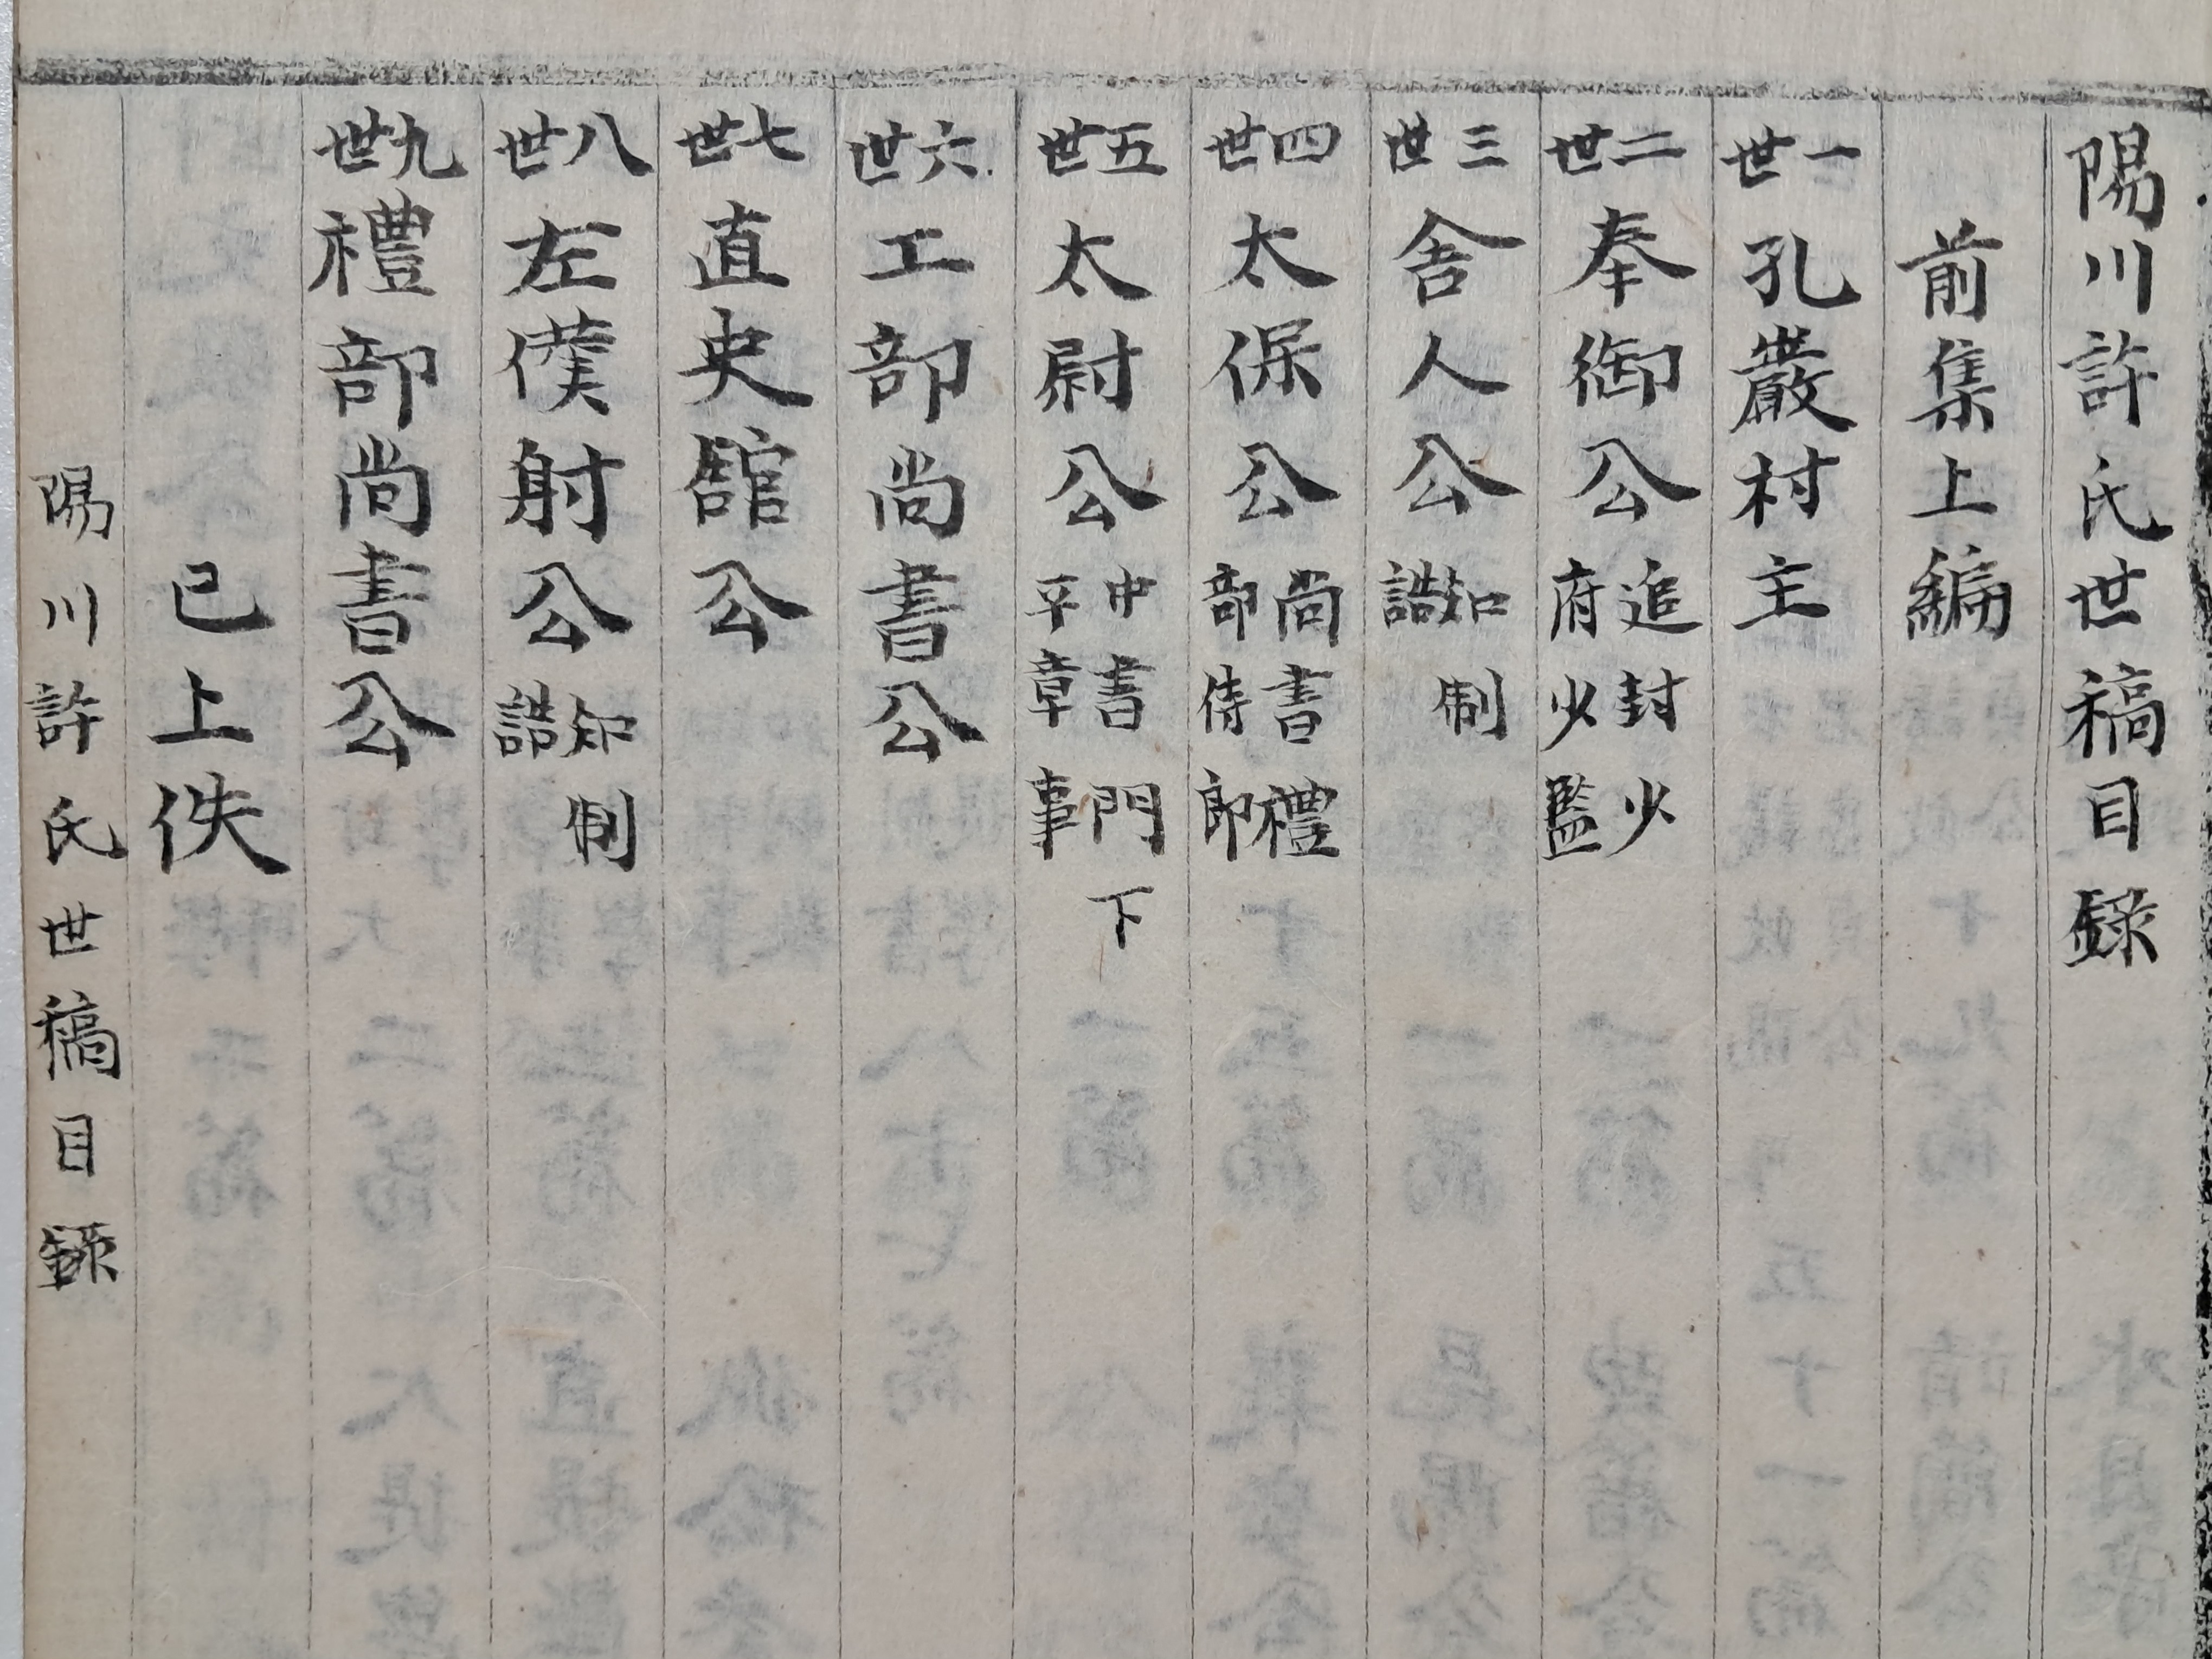 陽川許氏世稿目録
前集上編
一世 孔巖村主
二世 奉御公 追封少府少監
三世 舍人公 知制誥
四世 太保公 尚書禮部侍郎
五世 太尉公 中書門下平章事
六世 工部尚書公
七世 直史館公
八世 左僕射公 知制誥
九世 禮部尚書公
已上佚
陽川許氏世稿目録